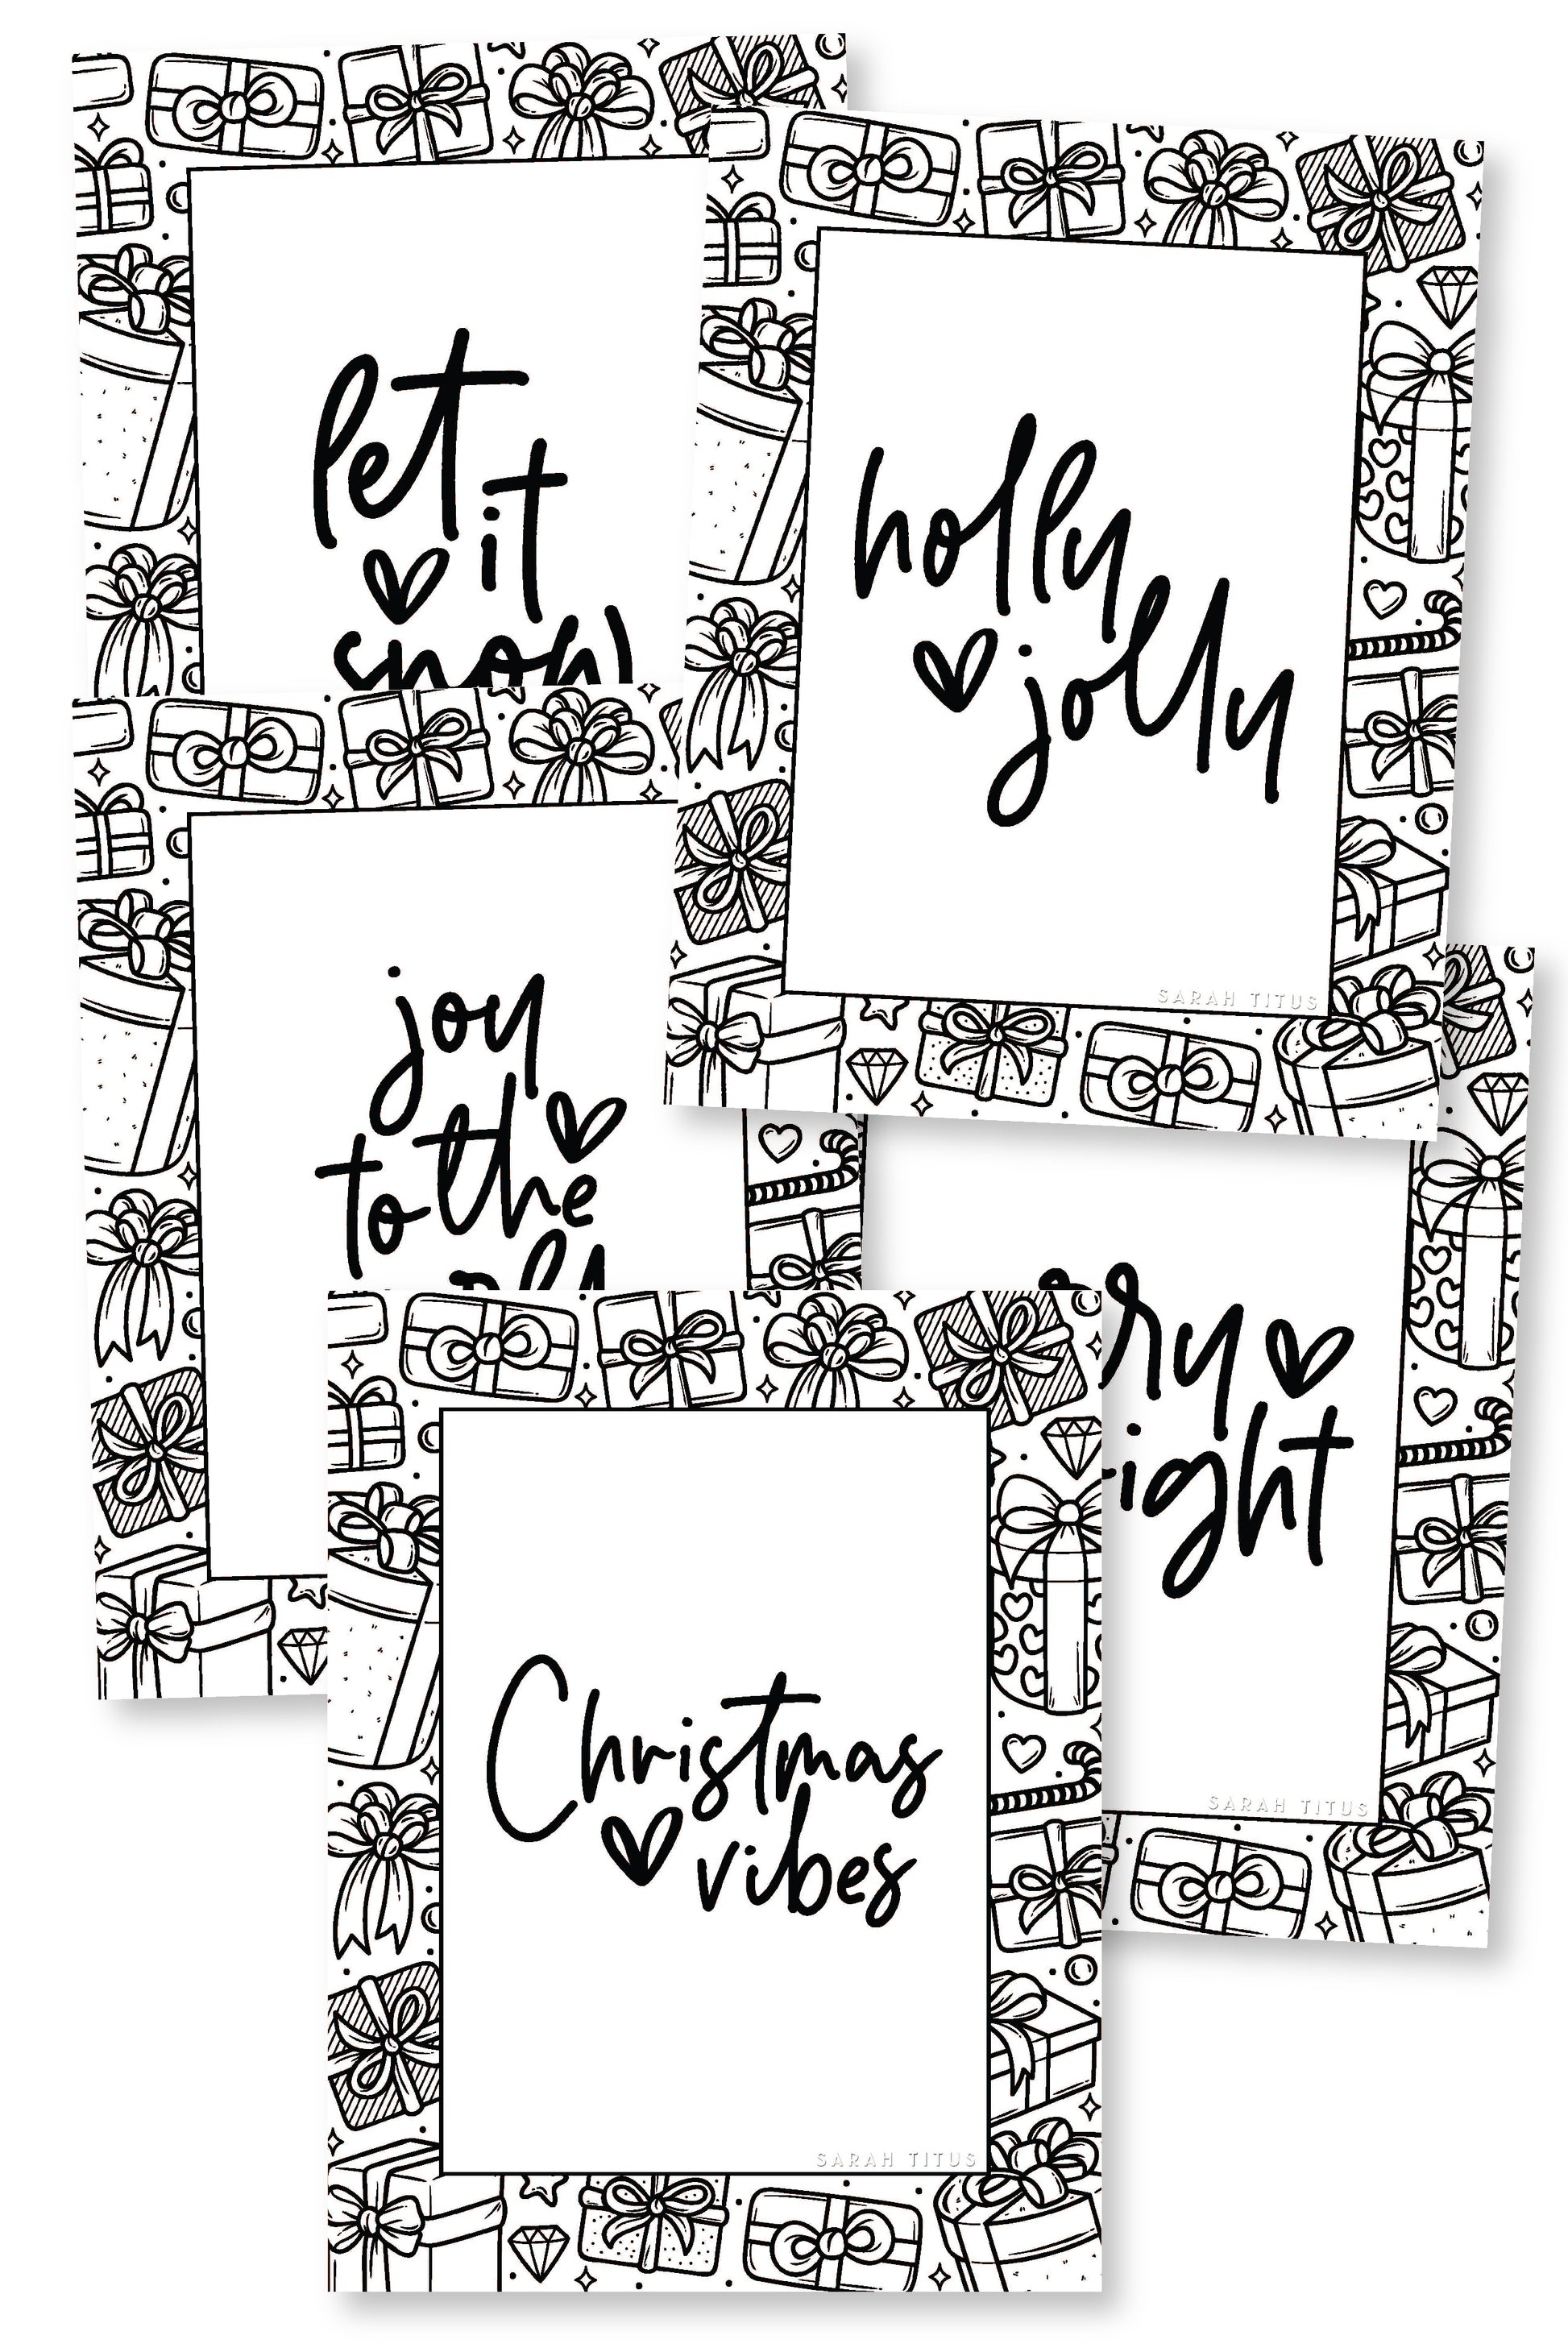 let
it
snow
holly
jolly
SARAH TITUS
joy
to the
ry
ight
SARAH TITUS
Christmas
vibes
SARAH TITUS